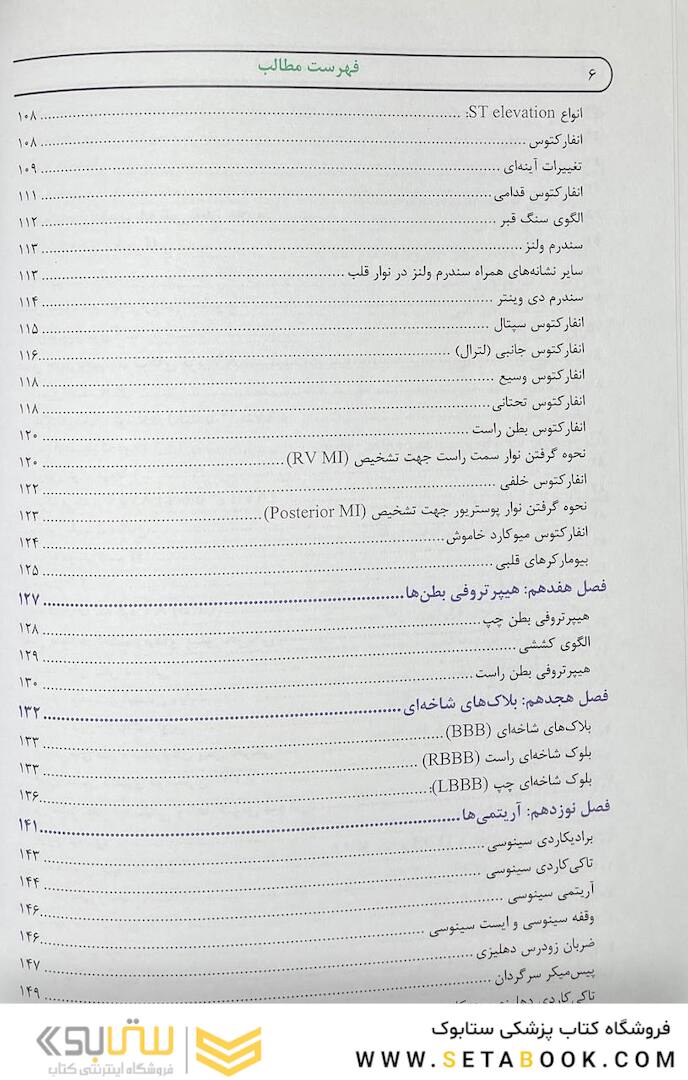 ۶
فهرست مطالب
انواع ST elevation: ۱۰۸
انفارکتوس ۱۰۸
تغییرات آینه‌ای ۱۰۹
انفارکتوس قدامی ۱۱۱
الگوی سنگ قبر ۱۱۲
سندرم ولنز ۱۱۳
سایر نشانه‌های همراه سندرم ولنز در نوار قلب ۱۱۳
سندرم دی وینتر ۱۱۴
انفارکتوس سپتال ۱۱۵
انفارکتوس جانبی (لترال) ۱۱۶
انفارکتوس وسیع ۱۱۸
انفارکتوس تحتانی ۱۱۸
انفارکتوس بطن راست ۱۲۰
نحوه گرفتن نوار سمت راست جهت تشخیص (RV MI) ۱۲۰
انفارکتوس خلفی ۱۲۲
نحوه گرفتن نوار پوستریور جهت تشخیص (Posterior MI) ۱۲۳
انفارکتوس میوکارد خاموش ۱۲۴
بیومارکرهای قلبی ۱۲۵
فصل هفدهم: هیپرتروفی بطن‌ها ۱۲۷
هیپرتروفی بطن چپ ۱۲۸
الگوی کششی ۱۲۹
هیپرتروفی بطن راست ۱۳۰
فصل هجدهم: بلاک‌های شاخه‌ای ۱۳۲
بلاک‌های شاخه‌ای (BBB) ۱۳۳
بلوک شاخه‌ای راست (RBBB) ۱۳۳
بلوک شاخه‌ای چپ (LBBB): ۱۳۶
فصل نوزدهم: آریتمی‌ها ۱۴۱
برادیکاردی سینوسی ۱۴۳
تاکی‌کاردی سینوسی ۱۴۴
آریتمی سینوسی ۱۴۶
وقفه سینوسی و ایست سینوسی ۱۴۶
ضربان زودرس دهلیزی ۱۴۷
پیس‌میکر سرگردان ۱۴۹
تاکی‌کاردی
فروشگاه کتاب پزشکی ستابوک
WWW.SETABOOK.COM
ستابوک
فروشگاه اینترنتی کتاب